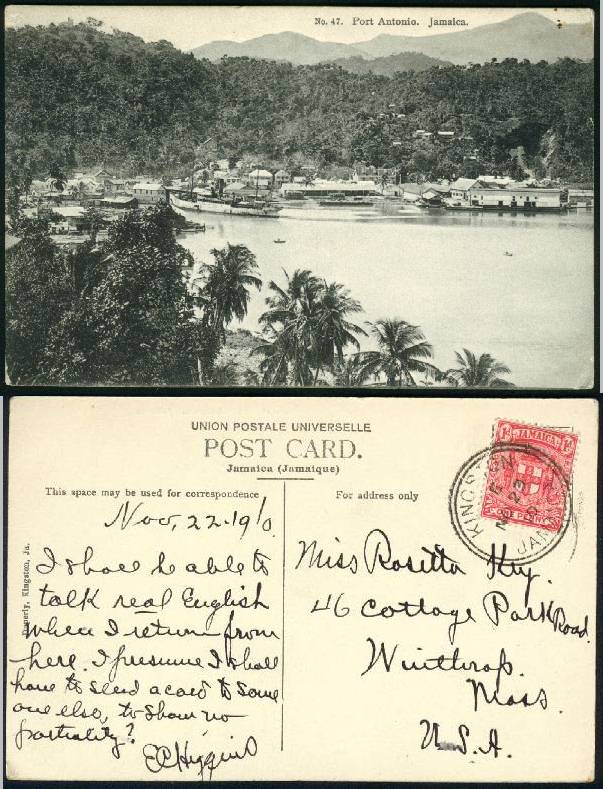 No. 47. Port Antonio. Jamaica.
UNION POSTALE UNIVERSELLE
POST CARD.
Jamaica (Jamaique)
This space may be used for correspondence
For address only
JAMAICA
ONE PENNY
KINGSTON
NO 23
10
JAMAICA
Nov, 22-1910.
I shall be able to
talk real English
when I return from
here. I presume I shall
have to send a card to some
one else, to show no
partiality?
EC Higgins
Kingston, Ja.
Miss Rosetta Key.
46 Cottage Park Road.
Winthrop.
Mass.
U.S.A.